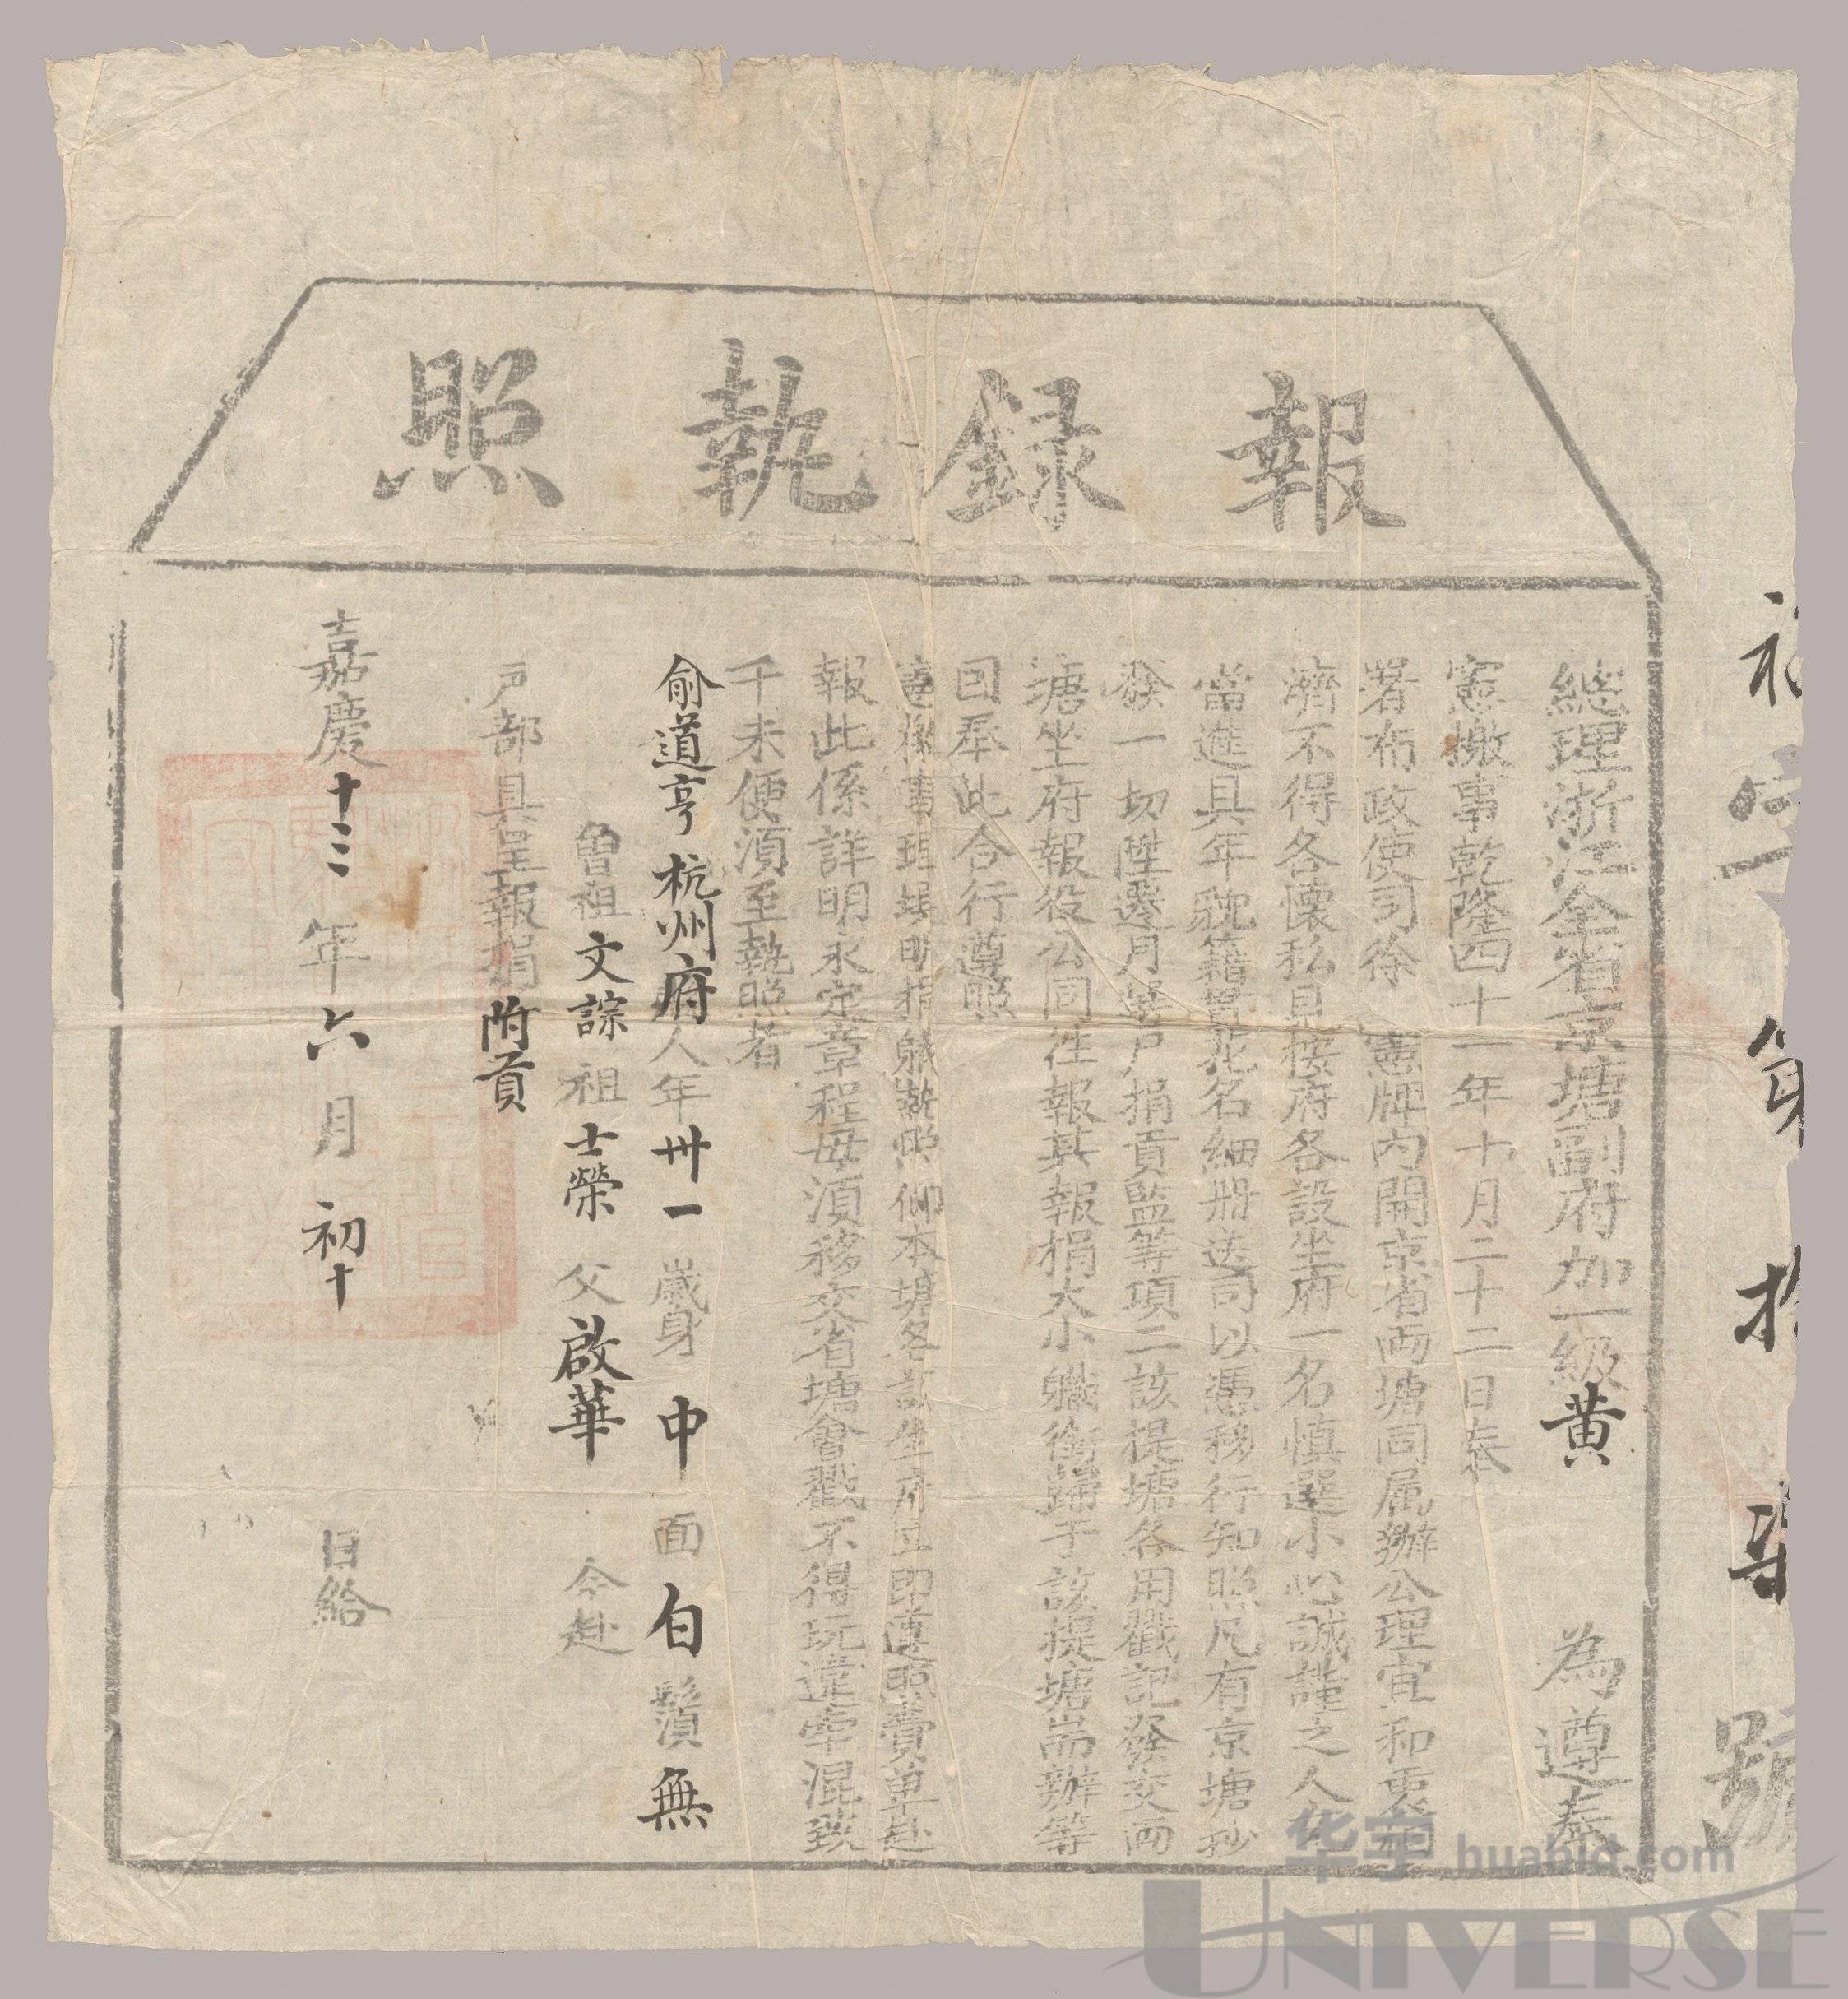 報錄執照
第拾
號
總理浙江全省京塘副府加一級黃 為遵奉
憲檄事乾隆四十一年十月二十二日奉
署布政使司徐 憲牌內開京省兩塘同屬辦公理宜和衷
濟不得各懷私見按府各設坐府一名慎選小心誠謹之人
當造具年貌籍貫花名細冊送司以憑移行知照凡有京塘抄
發一切陞遷月選戶捐貢監等項二該提塘各用戳記發交兩
塘坐府報役公同往報其報捐大小職銜歸于該提塘耑辦等
因奉此合行遵照
憲檄事理填明捐職執照仰本塘各該坐府立即遵照賫單赴
報此係詳明永定章程毋須移交省塘會戳不得玩違牽混致
干未便須至執照者
俞道亨 杭州府人年卅一歲身中面白鬚無
曾祖文誴 祖士榮 父啟華 今赴
戶部具呈報捐附貢
嘉慶十三年六月初十日給
华宇 huabid.com
UNIVERSE